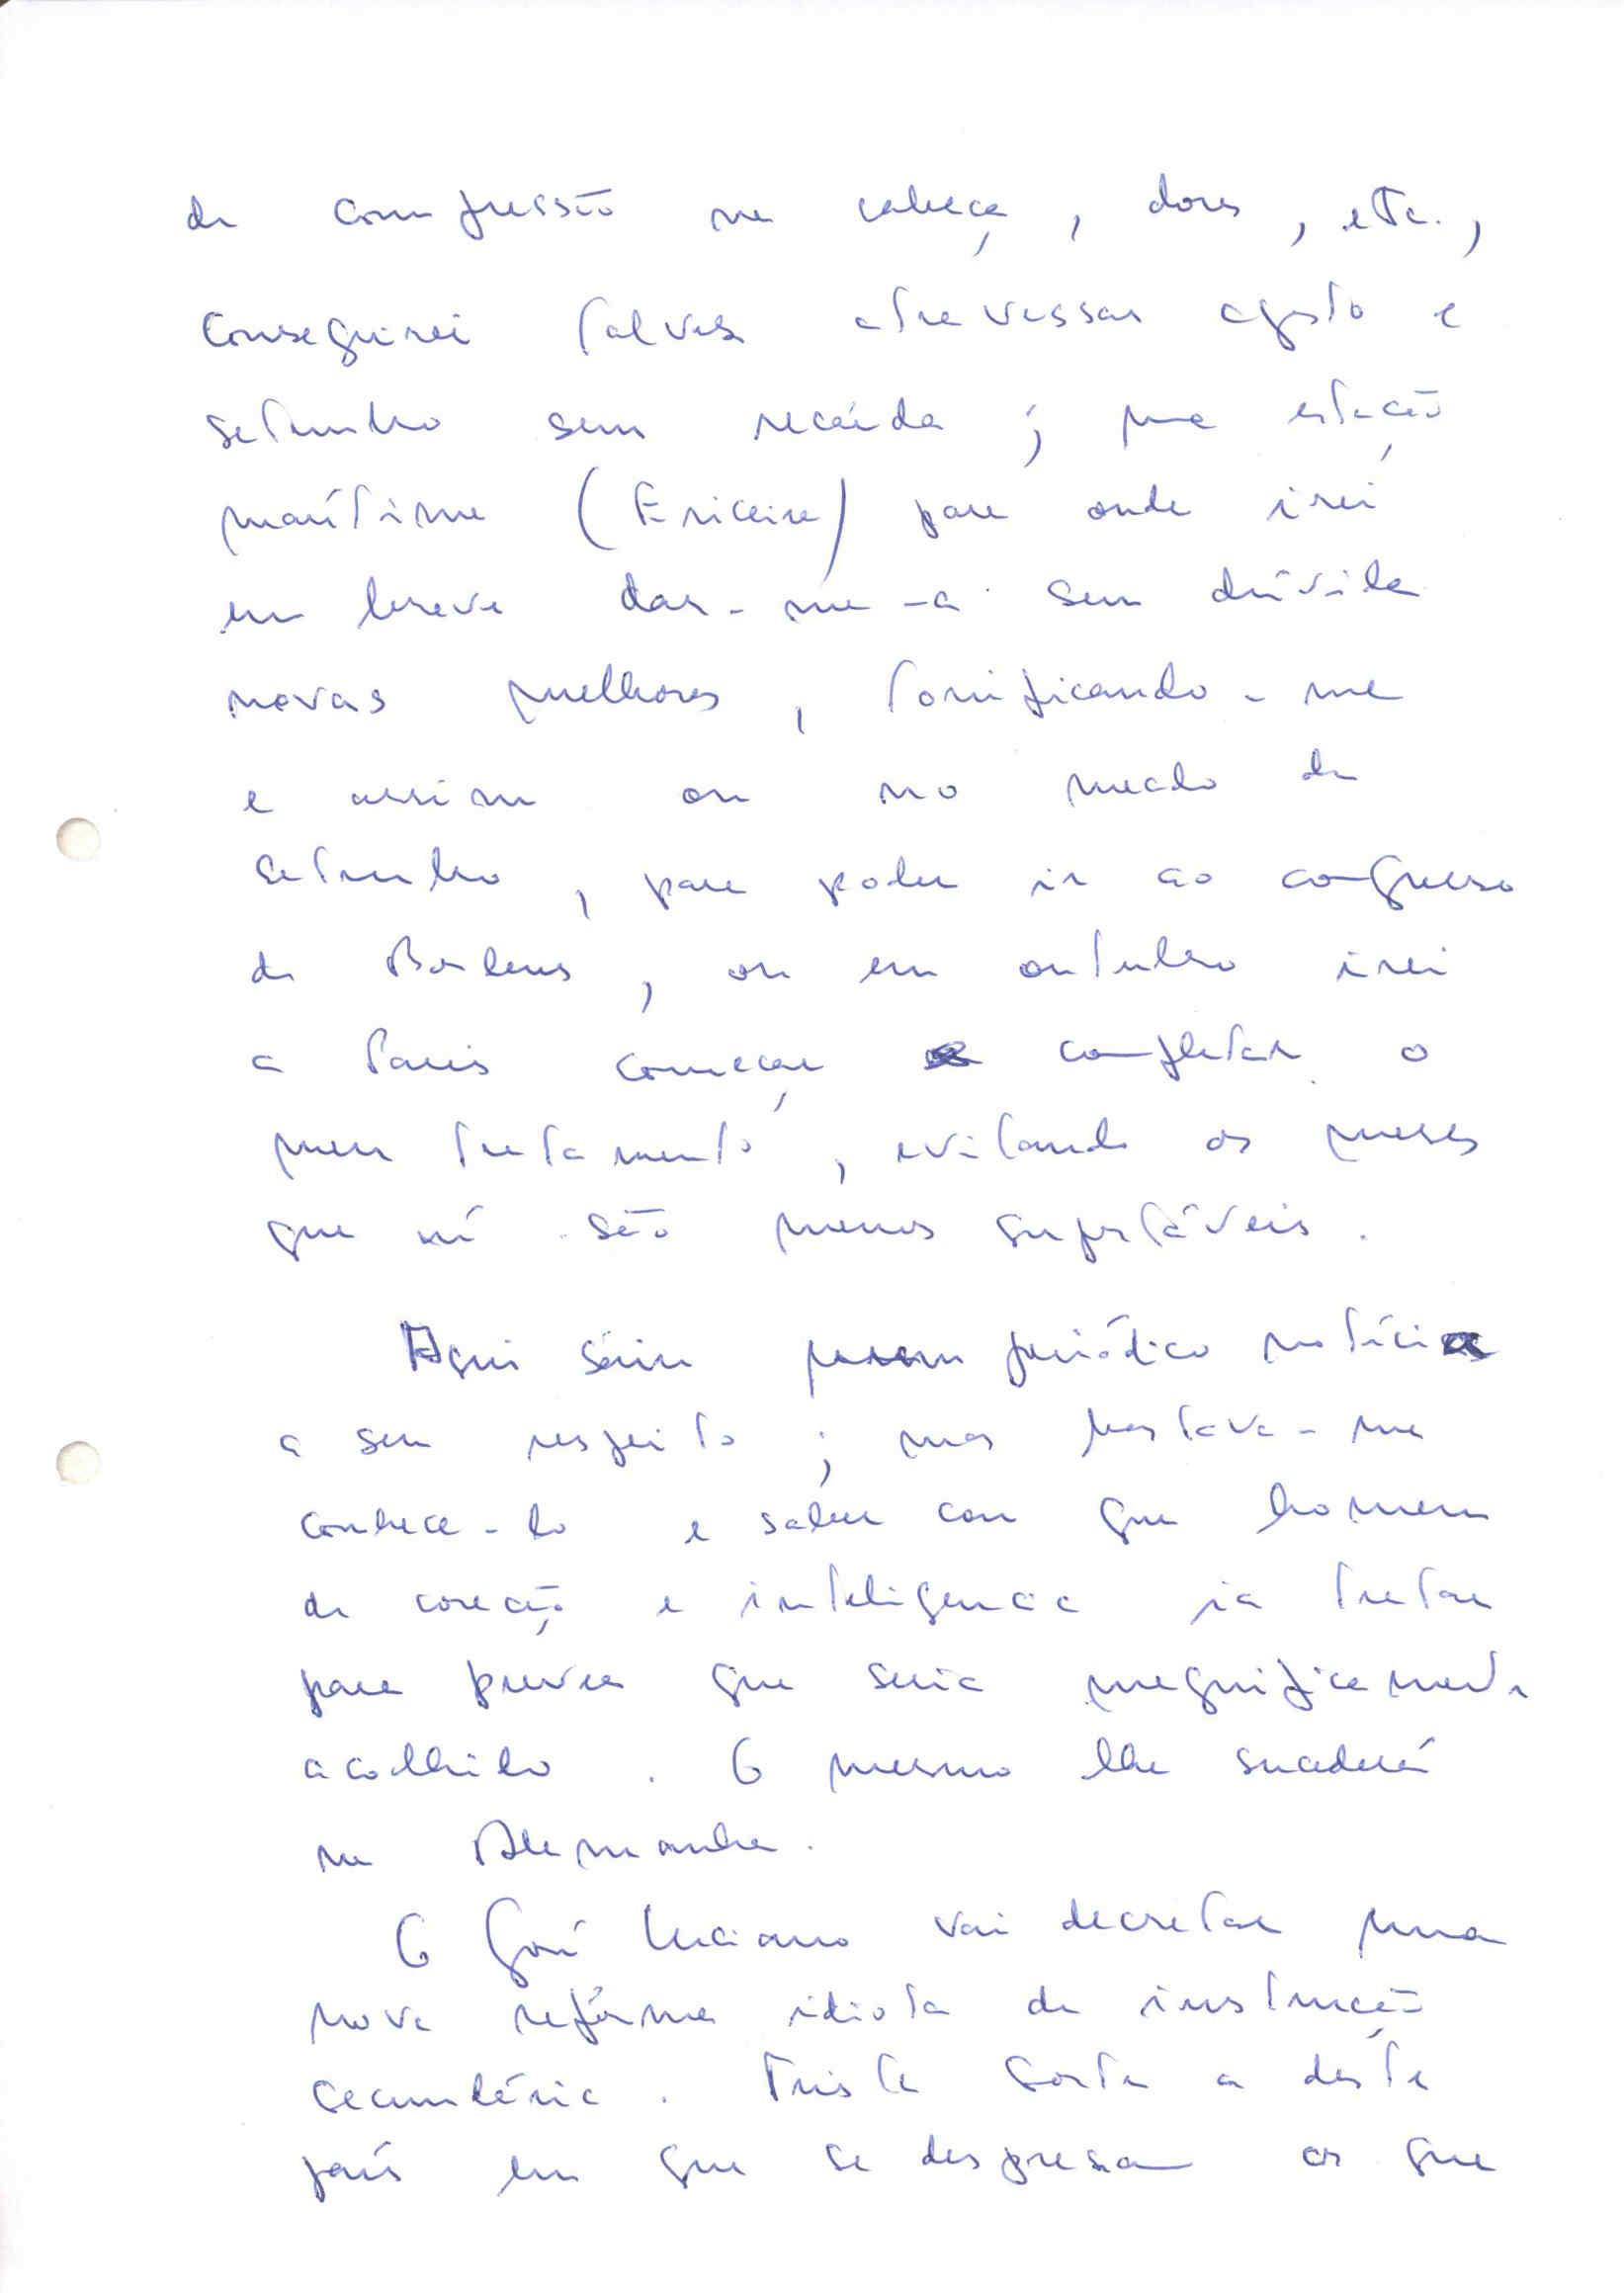 de compressão na cabeça, dores, etc.,
conseguirei talvez atravessar agosto e
setembro sem recaída; uma estação
marítima (Ericeira) para onde irei
em breve dar-me-a sem dúvida
novas melhoras, tonificando-me
e assim ou no meado de
setembro, para poder ir ao congresso
de Bordeus, ou em outubro irei
a Paris começar completar o
meu tratamento, evitando os meses
que aí são menos suportáveis.
Aqui saiu num periódico notícias
a seu respeito; mas bastava-me
conhece-lo e saber com que homem
de coração e inteligencia ia tratar
para prever que seria magnificamente
acolhido. O mesmo lhe sucederá
na Alemanha.
O José Luciano vai decretar uma
nova reforma idiota de instrução
secundária. Triste sorte a deste
país em que se despresam os que